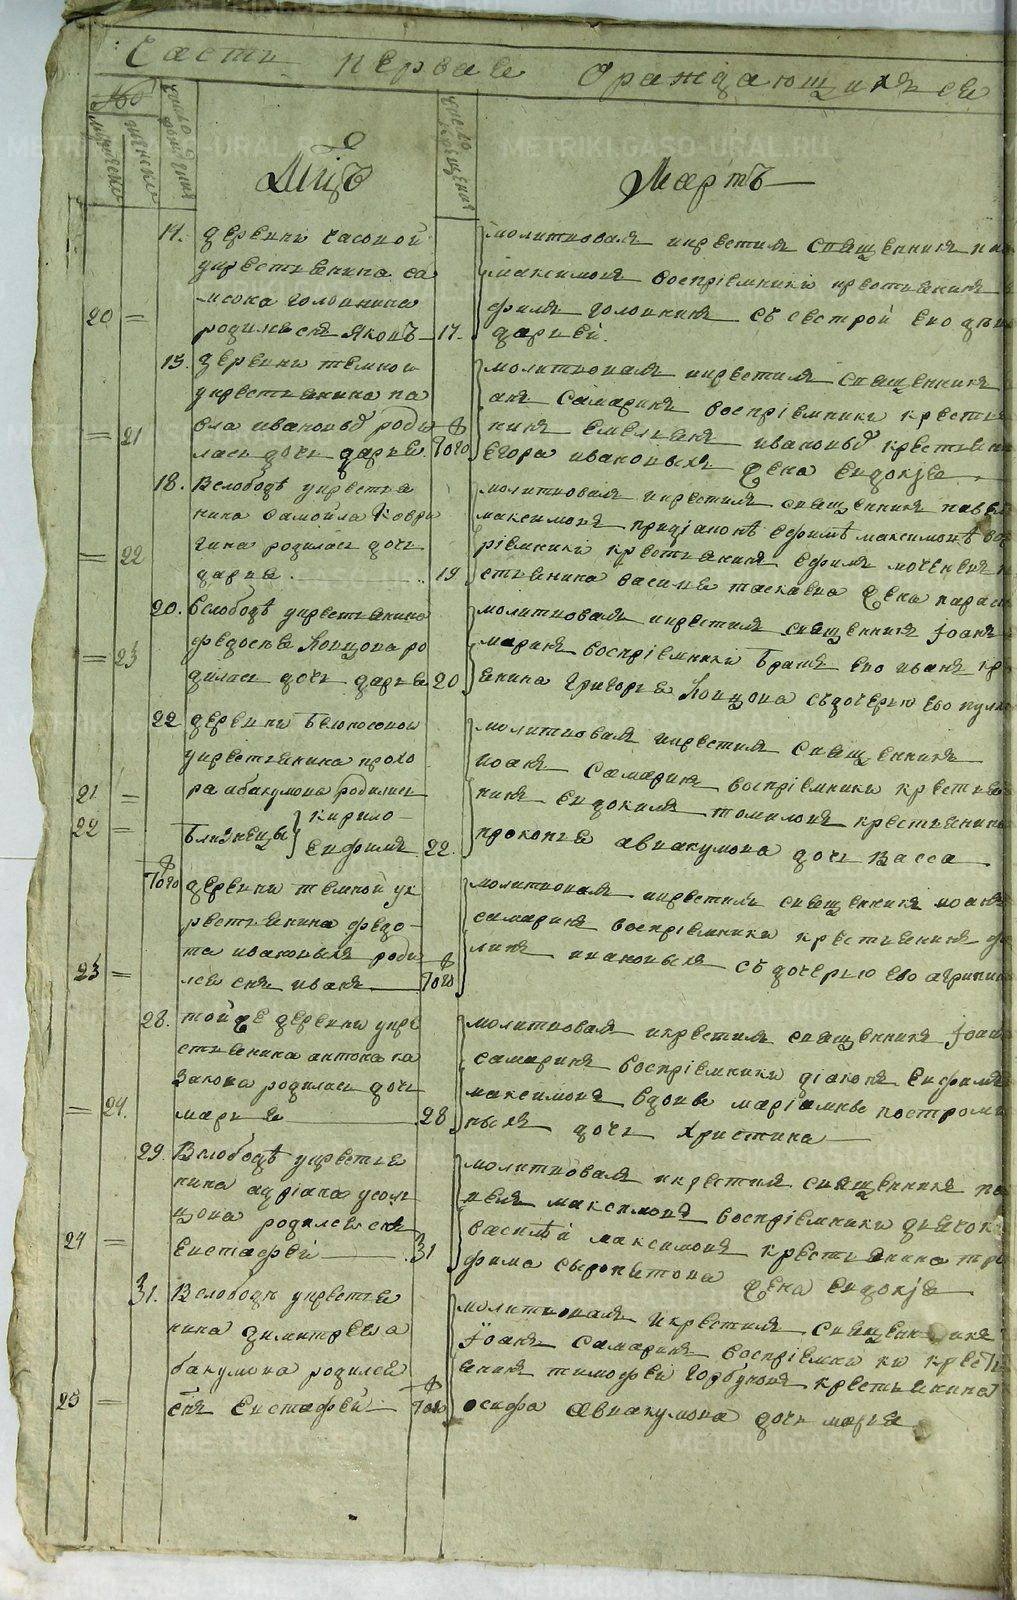 METRIKI.GASO-URAL.RU
Часть первая О раждающихся
№
мужеска
женска
число рождения
Мцъ
число крещения
Мартъ
20 =
17. деревни Часовой
укрестьянина са
мсона Головнина
родился снъ Яковъ 17.
молитвовалъ икрестилъ священникъ
Максимовъ воспріемники крестьянинъ
Головнинъ съ сестрой ево
Дарьей.
= 21
15. деревни Темной
укрестьянина Па
вла Ивановыхъ роди
лась дочь Дарья. того
молитвовалъ икрестилъ священникъ
Самаринъ воспріемники крестья
нинъ Емельянъ Ивановыхъ крестьян
Егора Ивановыхъ жена Евдокія
= 22
18. Вслободѣ укрестья
нина Самойла Коври
гина родилась дочь
Дарья. 19
молитвовалъ икрестилъ священникъ Павелъ
Максимовъ придіаконѣ Ефимѣ Максимовѣ вос
ріемники крестьянинъ Ефимъ
стьянина Василья Таскаева жена Парас
= 23
20. Вслободѣ укрестьянина
Федосѣя Концова ро
дилась дочь Дарья 20
молитвовалъ икрестилъ священникъ Іоаннъ
воспріемники братъ ево Иванъ кр
янина Григорья Концова съдочерью ево
21 =
22 =
22 деревни Белоносовой
укрестьянина Прохо
ра Абакумова родились
близнецы Кирило
Енфимъ 22.
молитвовалъ икрестилъ священникъ
Иоанъ Самаринъ воспріемники крестья
нинъ Евдокимъ Томиловъ крестьянина
Прокопья Авиакумова дочь Васса
23 =
того деревни Темной ук
рестьянина Федо
та Ивановыхъ роди
лся снъ Иванъ того
молитвовалъ икрестилъ священникъ Иоанъ
Самаринъ воспріемники крестьянинъ
Ивановыхъ съ дочерью ево
= 24.
28. той же деревни укре
стьянина Антона Ка
закова родилась дочь
Марья 28
молитвовалъ икрестилъ священникъ Іоан
Самаринъ воспріемники діаконъ Енфимъ
Максимовъ вдовы Маріамны Костроми
ныхъ дочь Христина
24 =
29. Вслободѣ укрестья
нина Адріана Усоль
цова родился снъ
Евстафей 31
молитвовалъ икрестилъ священникъ Па
велъ Максимовъ воспріемники дьячокъ
Василѣй Максимовъ крестьянина Тро
фима Сыропятова жена Евдокія
25 =
31. Вслободѣ укрестья
нина Димитрея А
бакумова родился
снъ Евстафей того
молитвовалъ икрестилъ священникъ
Іоанъ Самаринъ воспріемники крестья
янинъ Тимофей Горбуновъ крестьянина
осифа Авиакумова дочь Марья